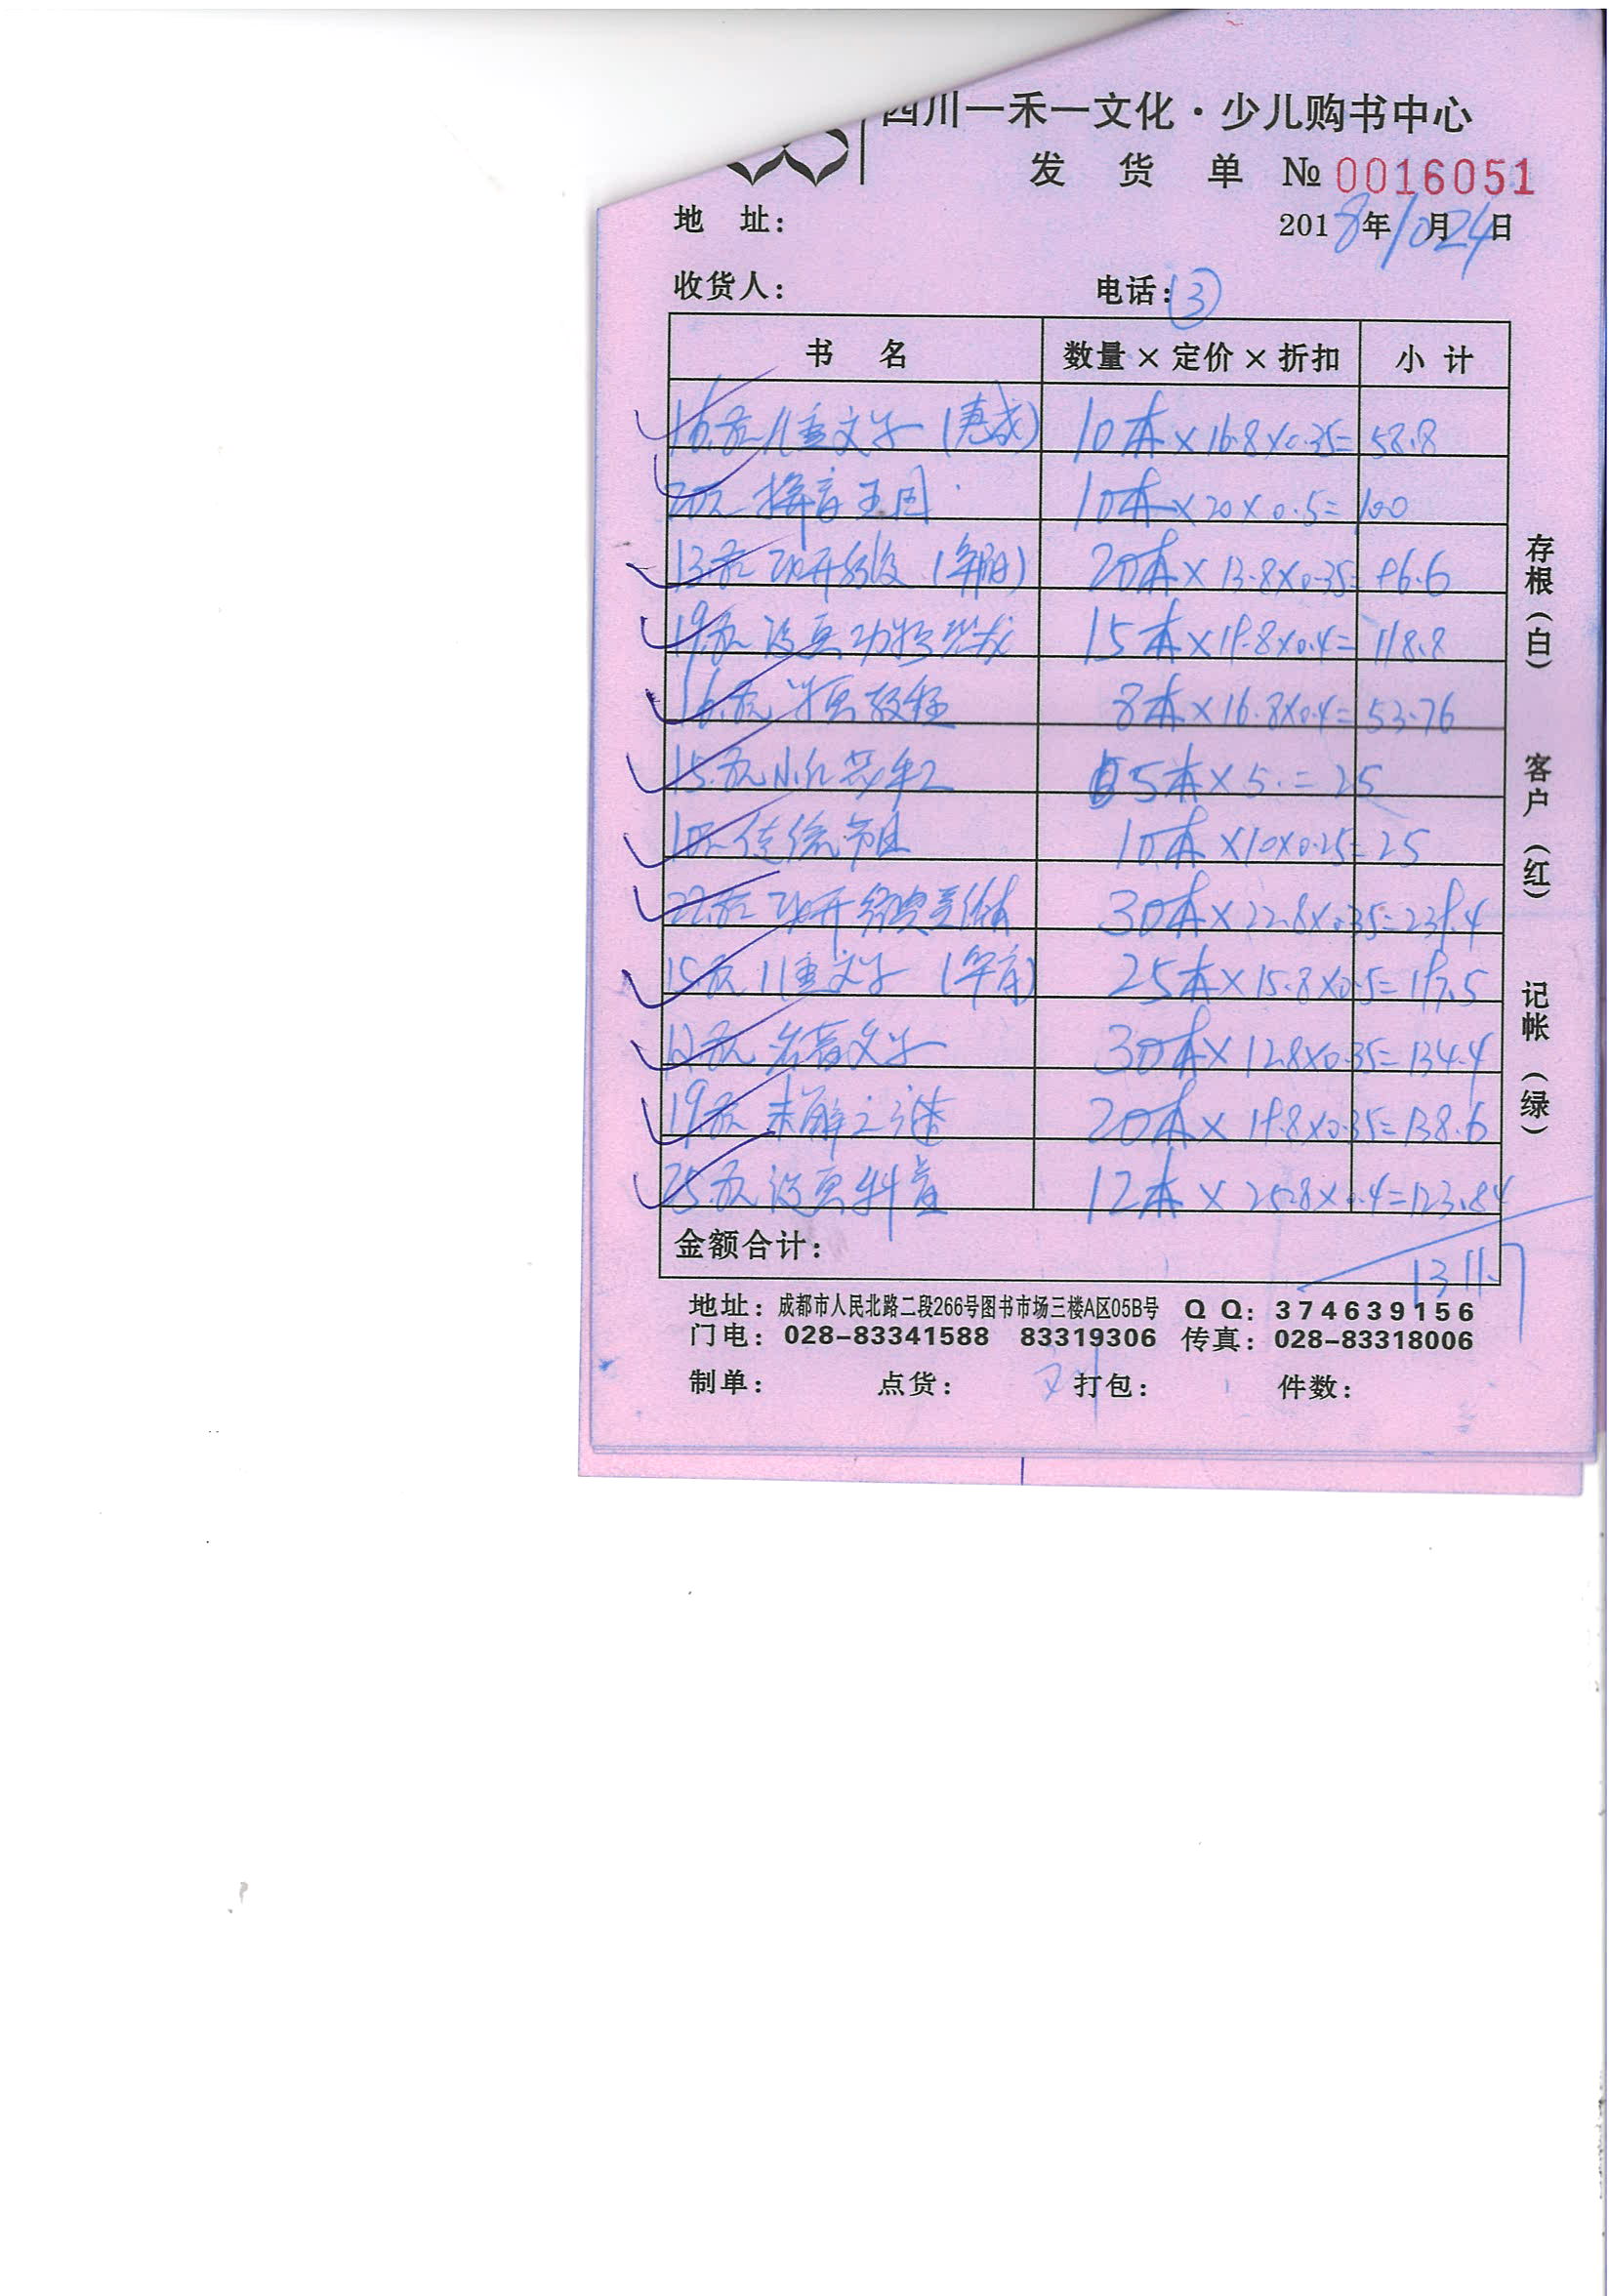 四川一禾一文化·少儿购书中心
发 货 单 № 0016051
地 址： 2018年10月24日
收货人： 电话：③
书 名 数量×定价×折扣 小 计
16.8元儿童文学 10本×16.8×0.35= 58.8
20元 拼音王国 10本×20×0.5= 100
13.8元 20本×13.8×0.35= 96.6
19.8元 15本×19.8×0.4= 118.8
16.8元 8本×16.8×0.4= 53.76
15.8元 5本×5.= 25
10元 传统节日 10本×10×0.25= 25
22.8元 30本×22.8×0.35= 239.4
15.8元 儿童文学 25本×15.8×0.5= 197.5
12.8元 名著文学 30本×12.8×0.35= 134.4
19.8元 未解之谜 20本×19.8×0.35= 138.6
25.8元 12本×25.8×0.4= 123.84
金额合计：
1311.7
地址：成都市人民北路二段266号图书市场三楼A区05B号 QQ：374639156
门电：028-83341588 83319306 传真：028-83318006
制单： 点货： 打包： 件数：
存根（白） 客户（红） 记帐（绿）